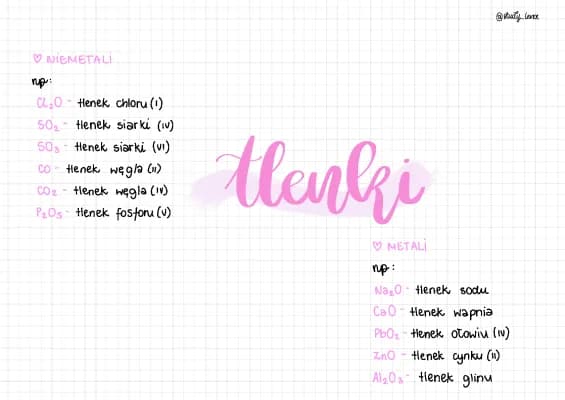 @study_inxx
♡ NIEMETALI
np:
Cl₂O - tlenek chloru (I)
SO₂ - tlenek siarki (IV)
SO₃ - tlenek siarki (VI)
CO - tlenek węgla (II)
CO₂ - tlenek węgla (IV)
P₂O₅ - tlenek fosforu (V)
tlenki
♡ METALI
np:
Na₂O - tlenek sodu
CaO - tlenek wapnia
PbO₂ - tlenek ołowiu (IV)
ZnO - tlenek cynku (II)
Al₂O₃ - tlenek glinu